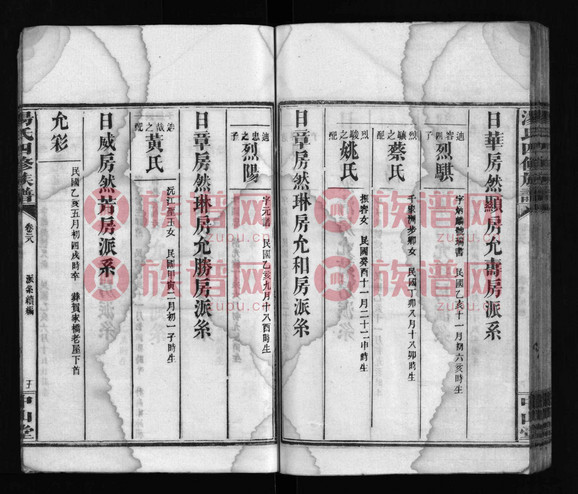 日華房然顯房允壽房派系
適容四子
烈騏
民國乙亥十一月初六亥時生
烈騏之配
蔡氏
千家洲步卿女 民國丁卯又月十六卯時生
烈駿之配
姚氏
振容女 民國癸酉十一月二十二申時生
日章房然琳房允和房派系
日章房然琳房允勝房派系
適忠之子
烈陽
字元 民國乙亥九月十八酉時生
之配
黃氏
沅江 玉女 民國甲寅二月初一子時生
日威房然芳房派系
允彩
民國乙亥五月初四戌時卒 葬賀家橋老屋下首
湯氏四修族譜
派系續編
中山堂
族谱网
zupu.cn